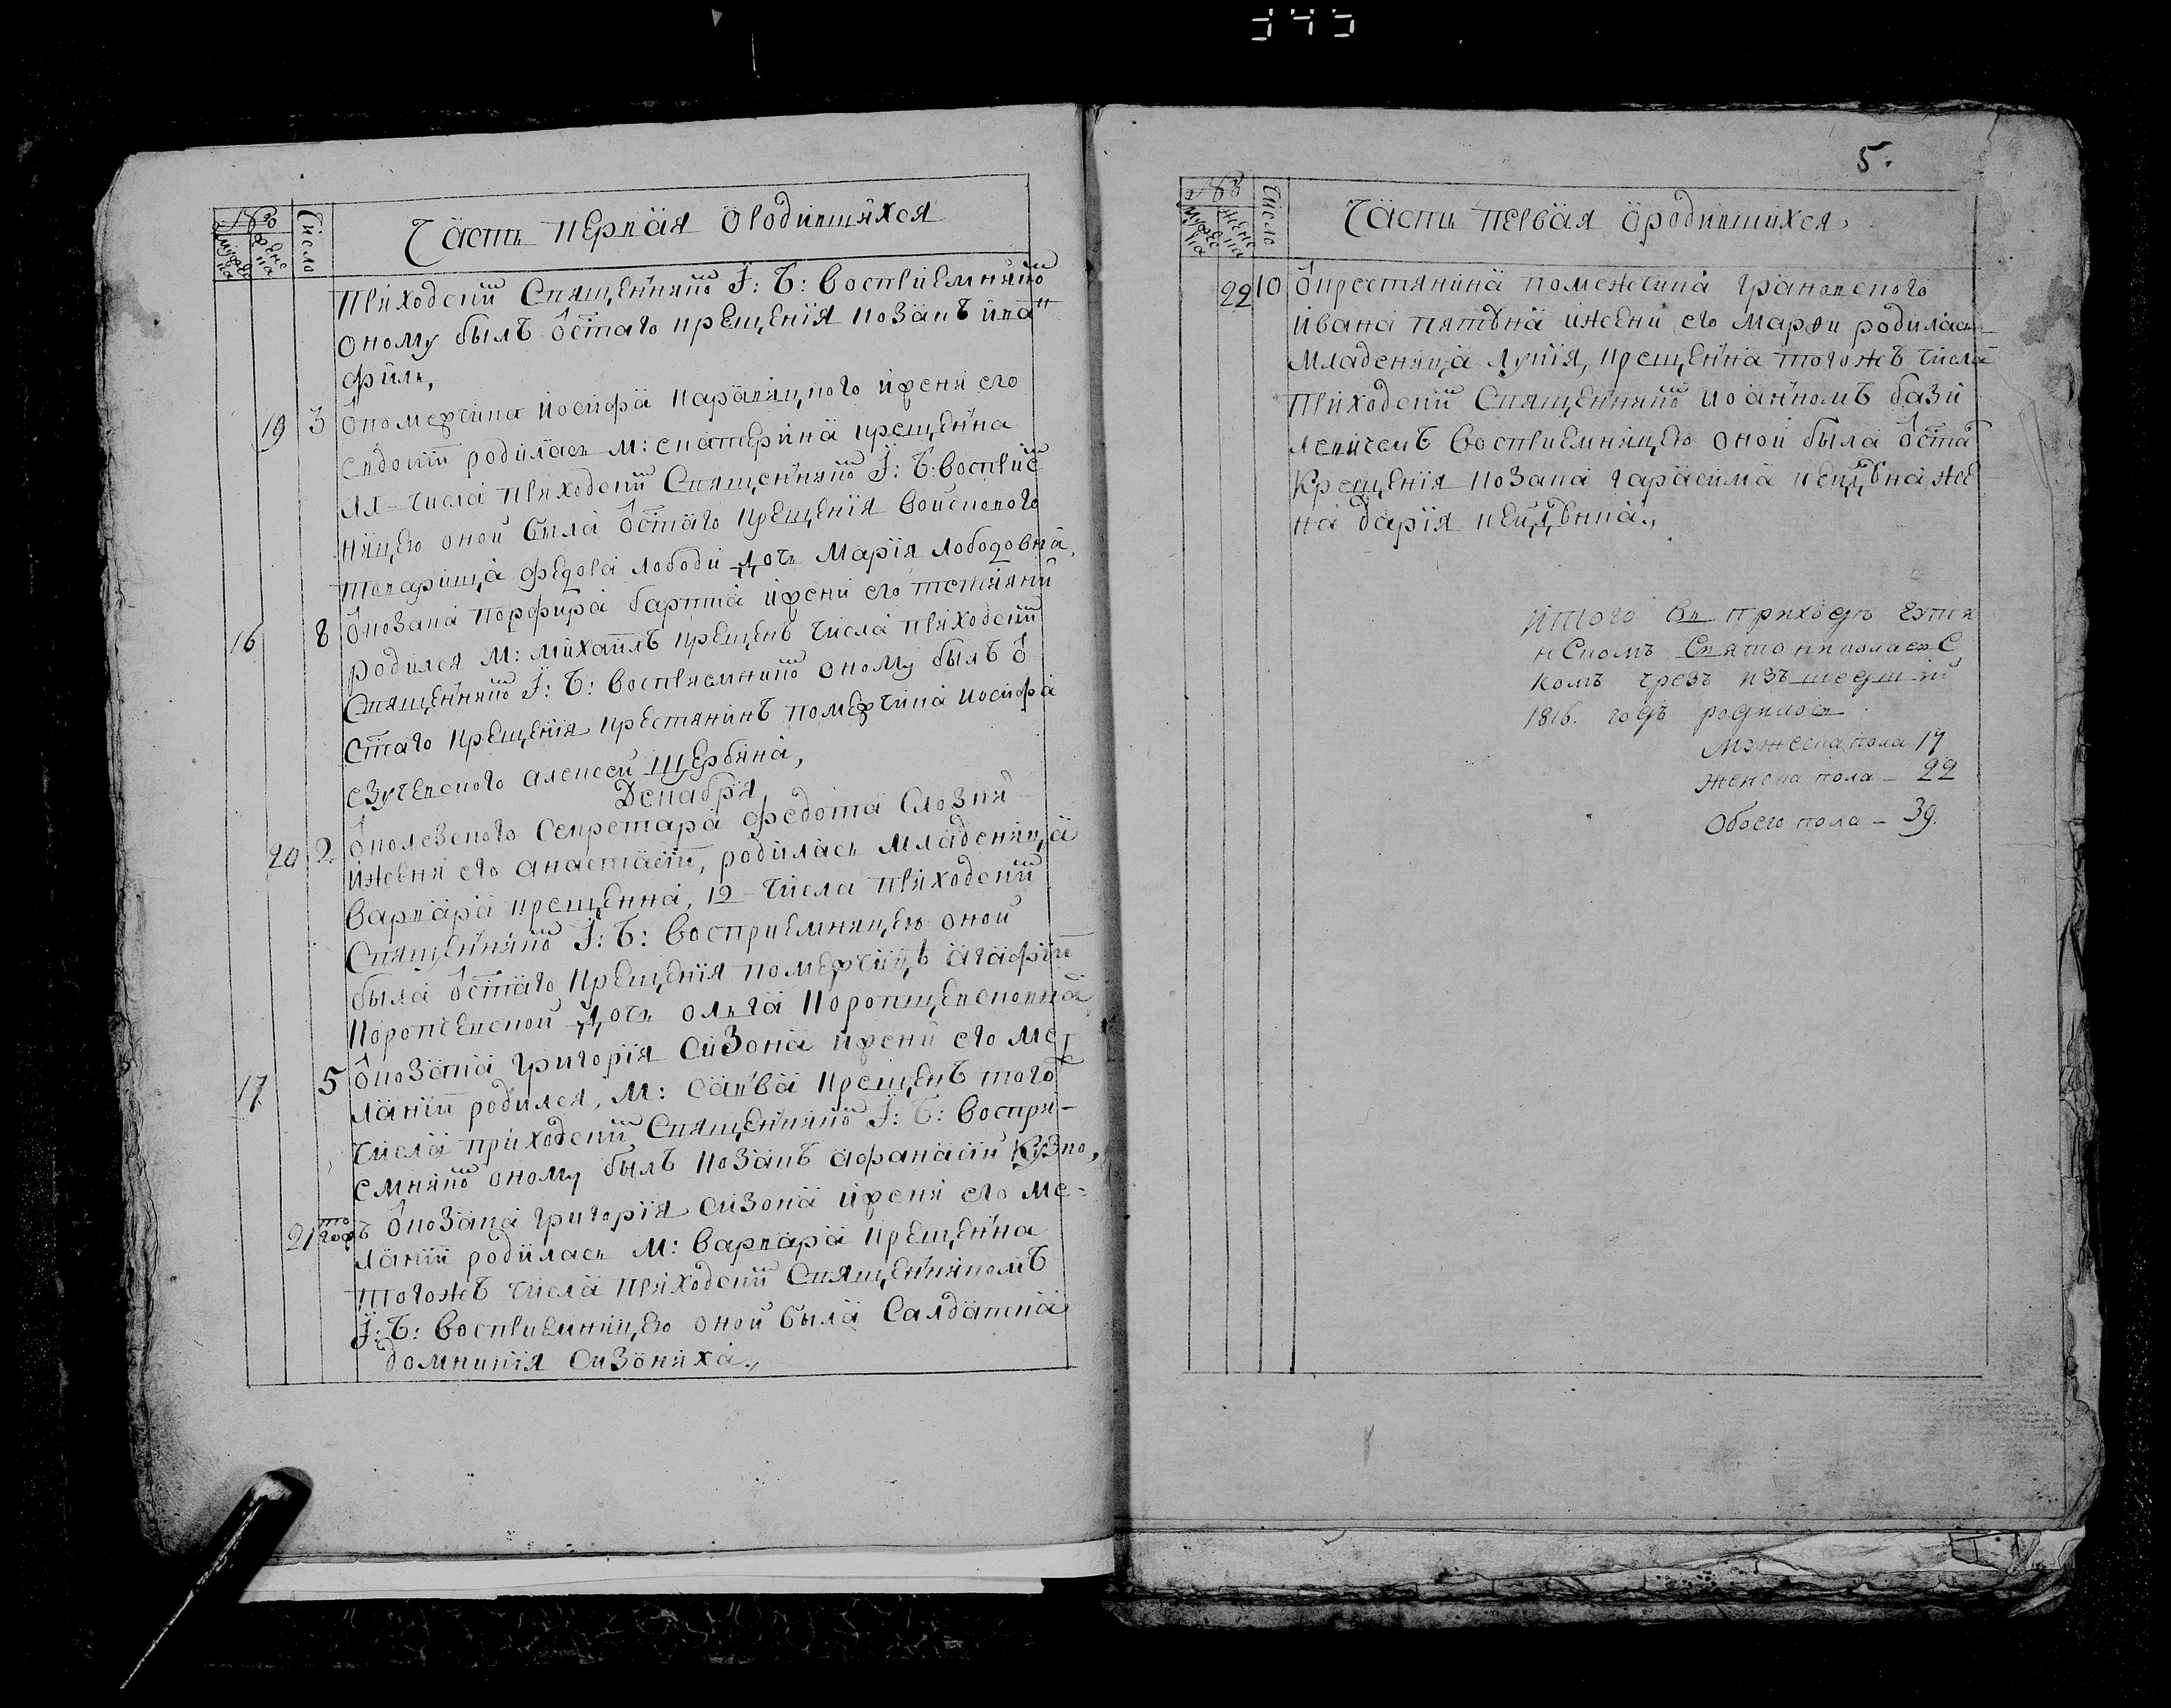 5.
№
Мужеска
Женска
Число
Часть первая о родившихся
приходскимъ Священникомъ І: Б: восприемникомъ
оному былъ от стаго крещенія козакъ иван
филь,
19 3 У помещика иосифа каравицкого и жени его
евдокіи родилась М: екатерина крещенна
11-числа приходскимъ Священникомъ І: Б: восприе
ницею оной была от стаго крещенія войскового
товарища федора лободи дочь марія лободовна,
16 8 У козака порфира бартка и жени его тетіяни
родился М: михаилъ крещенъ числа приходским
Священникомъ І: Б: восприемникомъ оному былъ от
стаго крещенія крестянинъ помещика иосифа
езучевского алексей щербина,
Декабря
20 2. У полезского Секретара федота Слозки
и жени его анастасіи, родилась младеница
варвара крещенна, 12-числа приходским
Священникомъ І: Б: восприемницею оной
была от стаго крещенія помещицѣ агафіи
коропчевской дочь ольга коропщевсковна
17 5 У козака григорія сизона и жени его ме
ланіи родился, М: савва крещенъ того
числа приходским Священникомъ І: Б: воспри-
емникомъ оному былъ козакъ афанасій Кузко,
21 тогожъ У козака григорія сизона и жени его ме-
ланіи родилась М: варвара крещенна
тогожъ числа приходским Священникомъ
І: Б: восприемницею оной была Салдатка
домникія сизониха.,
№
Мужеска
Женска
Число
Часть первая о родившихся
22 10 У крестянина помежчика грановского
ивана пятѣна и жени его марфи родилась
младеница лукія, крещенна тогожъ числа
приходским Священникомъ иоанномъ бази
левичемъ восприемницею оной была от ста
крещенія козака гарасима кецѣна же
на дарія кейцѣнка.,
Итого въ приходѣ
нскомъ Святониколаевс
комъ чрезъ изъшедшій
1816. годъ родилось
Мужеска пола 17
женска пола - 22
Обоего пола - 39.